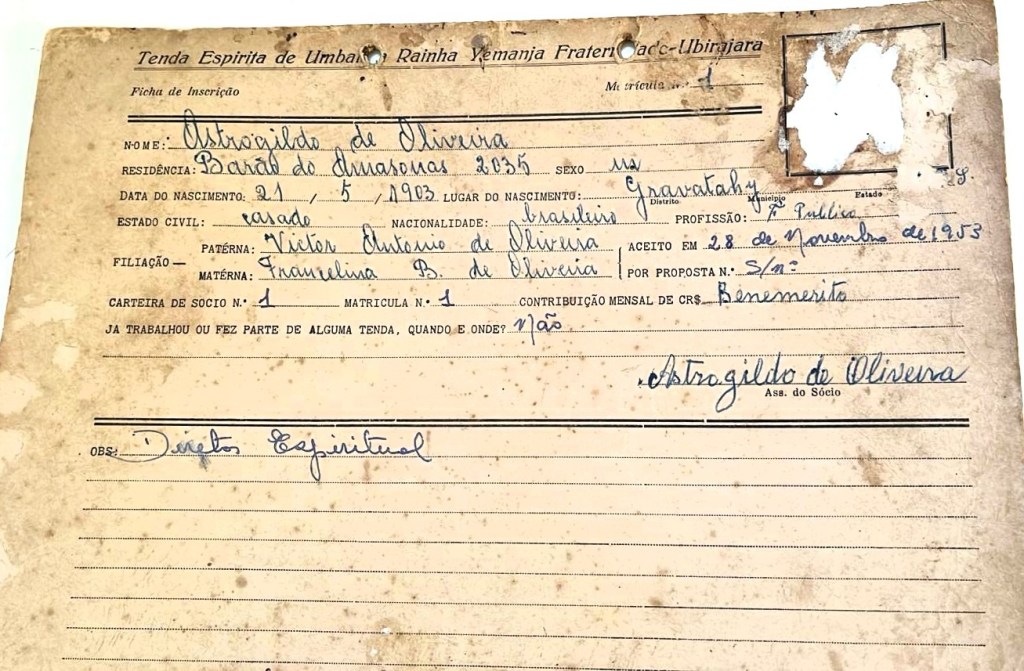 Tenda Espirita de Umbanda Rainha Yemanja Fraternidade-Ubirajara
Ficha de Inscrição Matricula n.º 1
NOME: Astrogildo de Oliveira
RESIDÊNCIA: Barão do Amasonas 2035 SEXO
DATA DO NASCIMENTO: 21 / 5 / 1903 LUGAR DO NASCIMENTO: Gravatahy S.
Distrito Municipio Estado
ESTADO CIVIL: casado NACIONALIDADE: brasileiro PROFISSÃO: F Publico
PATÉRNA: Victor Antonio de Oliveira ACEITO EM 28 de Novembro de 1953
FILIAÇÃO —
MATÉRNA: Francelina B. de Oliveira POR PROPOSTA N.º S/nº
CARTEIRA DE SOCIO N.º 1 MATRICULA N.º 1 CONTRIBUIÇÃO MENSAL DE CR$ Benemerito
JA TRABALHOU OU FEZ PARTE DE ALGUMA TENDA, QUANDO E ONDE? Não
Astrogildo de Oliveira
Ass. do Sócio
OBS: Diretor Espiritual